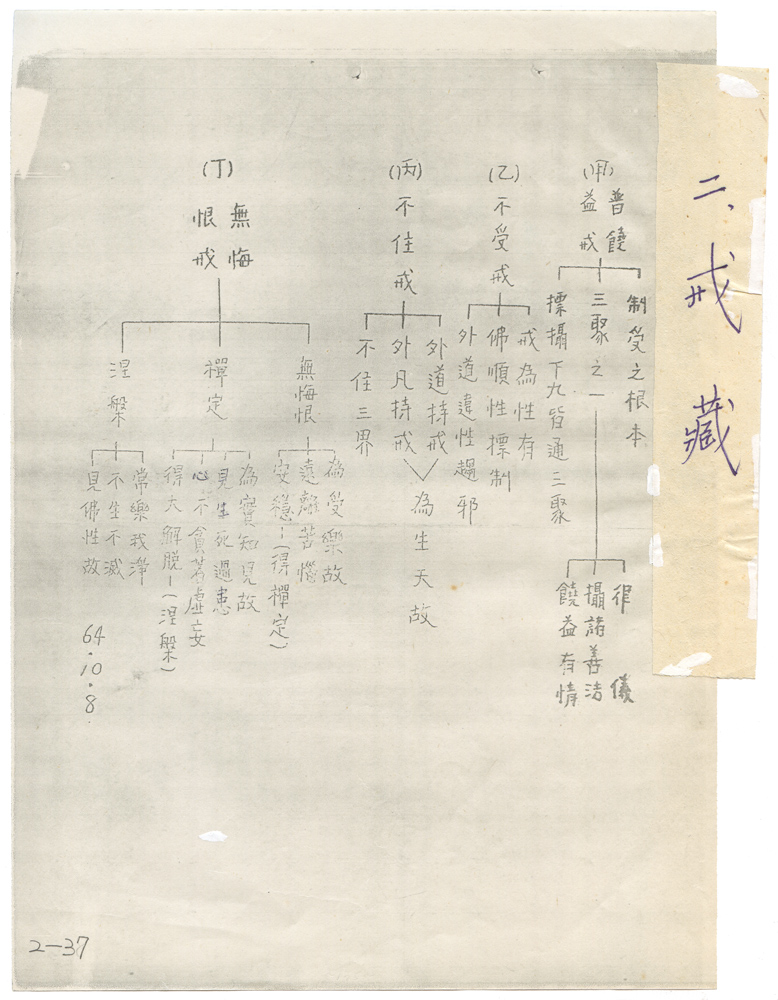 二、戒藏
(甲)
普饒
益戒
制受之根本
三聚之一
律儀
攝諸善法
饒益有情
標攝下九皆通三聚
(乙)
不受戒
戒為性有
佛順性標制
外道違性趨邪
(丙)
不住戒
外道持戒
外凡持戒
為生天故
不住三界
(丁)
無悔
恨戒
無悔恨
為受樂故
遠離苦惱
安穩-(得禪定)
禪定
為實知見故
見生死過患
心不貪著虛妄
得大解脫-(涅槃)
涅槃
常樂我淨
不生不滅
見佛性故
64.10.8.
2-37